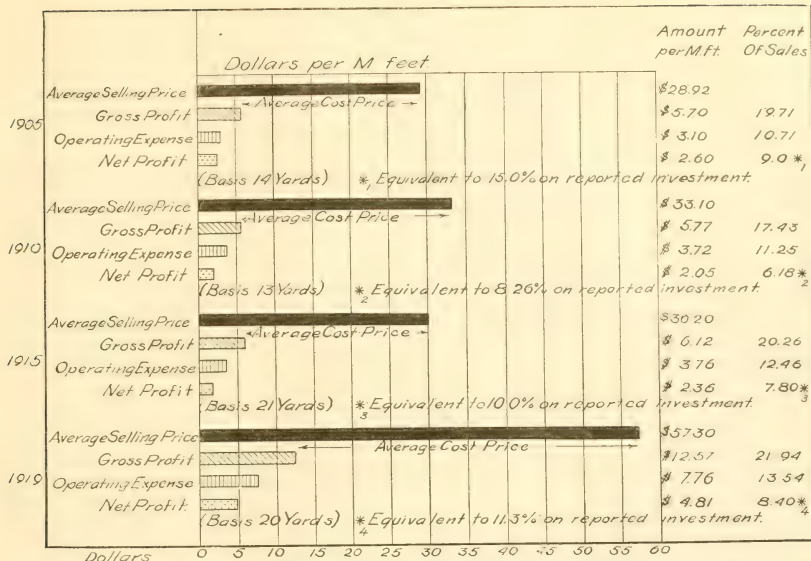 Amount Percent
Dollars per M feet per M ft. Of Sales
1905
Average Selling Price $28.92
Average Cost Price
Gross Profit $5.70 19.71
Operating Expense $3.10 10.71
Net Profit $2.60 9.0 *1
(Basis 14 Yards) *1 Equivalent to 15.0% on reported investment.
1910
Average Selling Price $33.10
Average Cost Price
Gross Profit $5.77 17.43
Operating Expense $3.72 11.25
Net Profit $2.05 6.18 *2
(Basis 13 Yards) *2 Equivalent to 8.26% on reported investment.
1915
Average Selling Price $30.20
Average Cost Price
Gross Profit $6.12 20.26
Operating Expense $3.76 12.46
Net Profit $2.36 7.80 *3
(Basis 21 Yards) *3 Equivalent to 10.0% on reported investment.
1919
Average Selling Price $57.30
Average Cost Price
Gross Profit $12.57 21.94
Operating Expense $7.76 13.54
Net Profit. $4.81 8.40 *4
(Basis 20 Yards) *4 Equivalent to 11.3% on reported investment.
Dollars 0 5 10 15 20 25 30 35 40 45 50 55 60